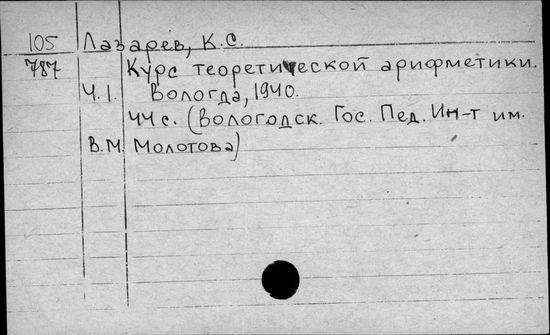 105 Лазарев, К.С.
787 Курс теоретической арифметики.
Ч.1. Вологда, 1940.
44 с. (Вологодск. Гос. Пед. Ин-т им.
В.М. Молотова)